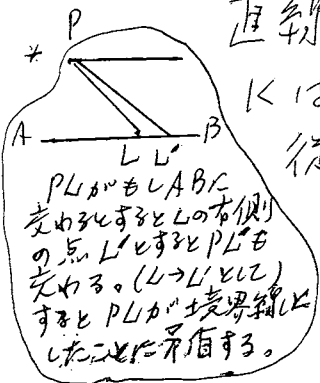 P
*
直線
Kは
従
A B
L L'
PLがもしABに
交わるとするとLの右側
の点L'とするとPL'も
交わる。(L→L'として)
するとPLが境界線と
したことに矛盾する。